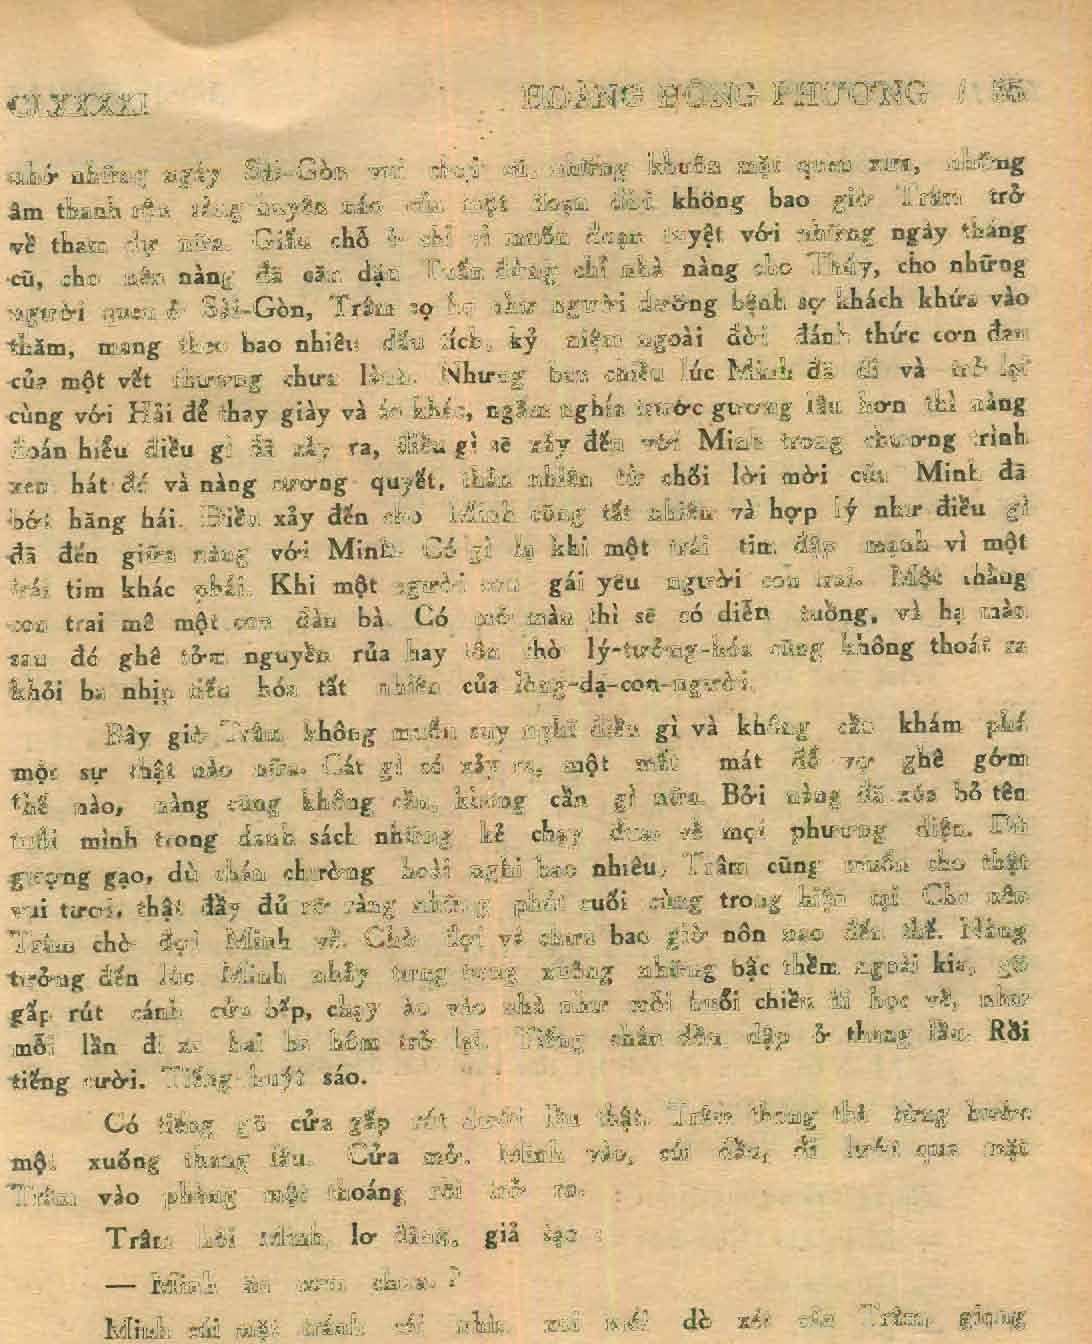 CLXXXXI HOÀNG ĐÔNG PHƯƠNG / 55
nhớ những ngày Sài-Gòn vui chơi cũ, những khuôn mặt quen xưa, những
âm thanh rộn ràng huyên náo của một đoạn đời không bao giờ Trâm trở
về tham dự nữa. Giấu chỗ ở chỉ vì muốn đoạn tuyệt với những ngày tháng
cũ, cho nên nàng đã căn dặn Tuấn đừng chỉ nhà nàng cho Thúy, cho những
người quen ở Sài-Gòn, Trâm sợ họ như người dưỡng bệnh sợ khách khứa vào
thăm, mang theo bao nhiêu dấu tích, kỷ niệm ngoài đời đánh thức cơn đau
của một vết thương chưa lành. Nhưng ban chiều lúc Minh đã đi và trở lại
cùng với Hải để thay giày và áo khác, ngắm nghía trước gương lâu hơn thì nàng
đoán hiểu điều gì đã xảy ra, điều gì sẽ xảy đến với Minh trong chương trình
xen hát đó và nàng cương quyết, thản nhiên từ chối lời mời của Minh đã
bớt hăng hái. Điều xảy đến cho Minh cũng tất nhiên và hợp lý như điều gì
đã đến giữa nàng với Minh. Có gì lạ khi một trái tim đập mạnh vì một
trái tim khác phái. Khi một người con gái yêu người con trai. Một thằng
con trai mê một con đàn bà. Có mở màn thì sẽ có diễn tuồng, và hạ màn
sau đó ghê tởm nguyền rủa hay tôn thờ lý-tưởng-hóa cũng không thoát ra
khỏi ba nhịp tiến hóa tất nhiên của lòng-dạ-con-người.
Bây giờ Trâm không muốn suy nghĩ điều gì và không cần khám phá
một sự thật nào nữa. Cát gì có xảy ra, một mất mát đổ vỡ ghê gớm
thế nào, nàng cũng không cần, không cần gì nữa. Bởi nàng đã xóa bỏ tên
tuổi mình trong danh sách những kẻ chạy đua về mọi phương diện. Dù
gượng gạo, dù chán chường hoài nghi bao nhiêu, Trâm cũng muốn cho thật
vui tươi, thật đầy đủ rỡ ràng những phút cuối cùng trong hiện tại. Cho nên
Trâm chờ đợi Minh về. Chờ đợi và chưa bao giờ nôn nao đến thế. Nàng
tưởng đến lúc Minh nhảy tưng tưng xuống những bậc thềm ngoài kia, gõ
gấp rút cánh cửa bếp, chạy ào vào nhà như mỗi buổi chiều đi học về, như
mỗi lần đi xa hai ba hôm trở lại. Tiếng chân dồn dập ở thang lầu. Rồi
tiếng cười. Tiếng huýt sáo.
Có tiếng gõ cửa gấp rút dưới lầu thật. Trâm thong thả từng bước
một xuống thang lầu. Cửa mở. Minh vào, cúi đầu, đi lướt qua mặt
Trâm vào phòng một thoáng rồi trở ra.
Trâm hỏi Minh, lơ đãng, giả tạo :
— Minh ăn cơm chưa ?
Minh cúi mặt tránh cái nhìn soi mói dò xét của Trâm, giọng